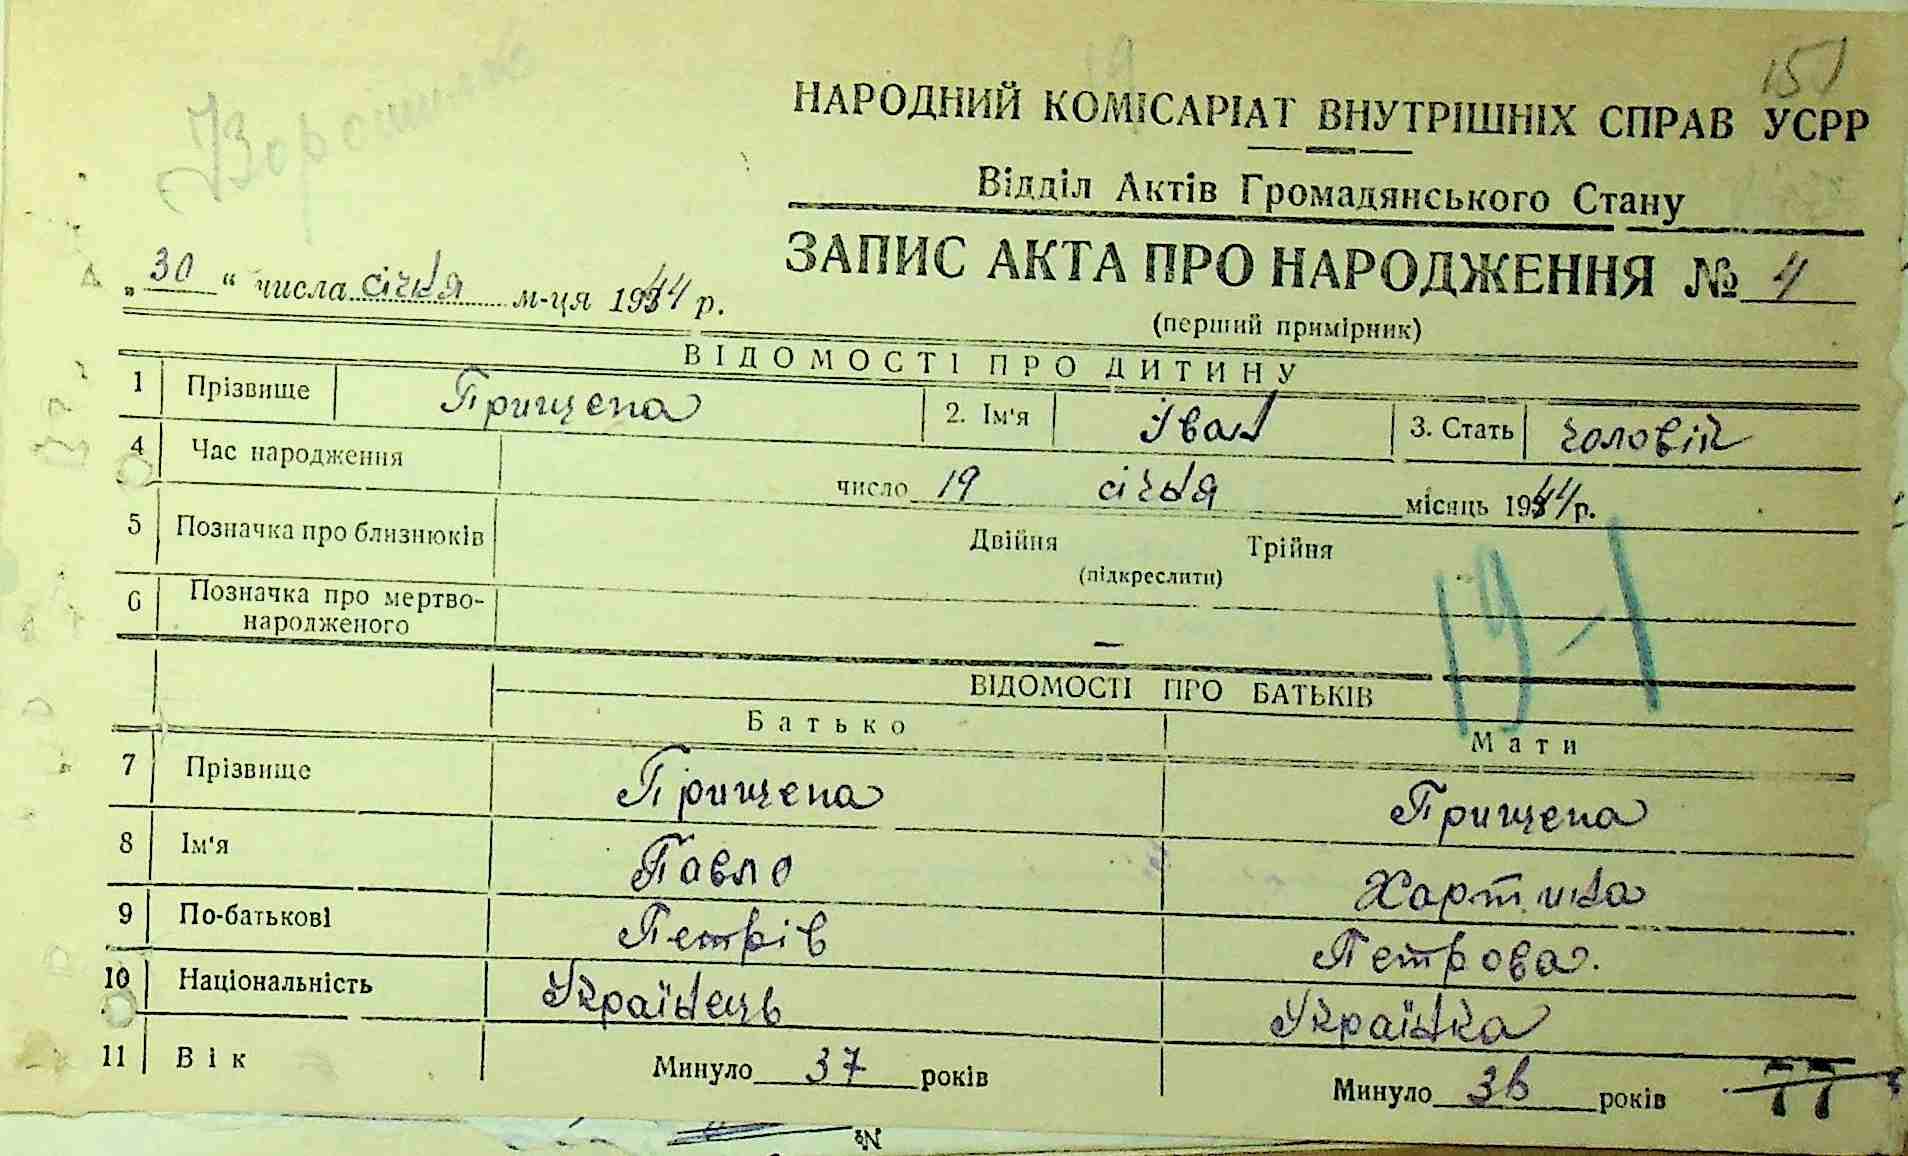 151
НАРОДНИЙ КОМІСАРІАТ ВНУТРІШНІХ СПРАВ УСРР
Відділ Актів Громадянського Стану
ЗАПИС АКТА ПРО НАРОДЖЕННЯ № 4
„30“ числа січня м-ця 1944 р.
(перший примірник)
ВІДОМОСТІ ПРО ДИТИНУ
1 Прізвище Прищепа 2. Ім'я Іван 3. Стать чоловік
4 Час народження число 19 січня місяць 1944 р.
5 Позначка про близнюків Двійня Трійня
(підкреслити)
6 Позначка про мертво-
народженого —
19-1
ВІДОМОСТІ ПРО БАТЬКІВ
Батько Мати
7 Прізвище Прищепа Прищепа
8 Ім'я Павло Хартина
9 По-батькові Петрів Петрова.
10 Національність Українець Українка
11 Вік Минуло 37 років Минуло 36 років
№